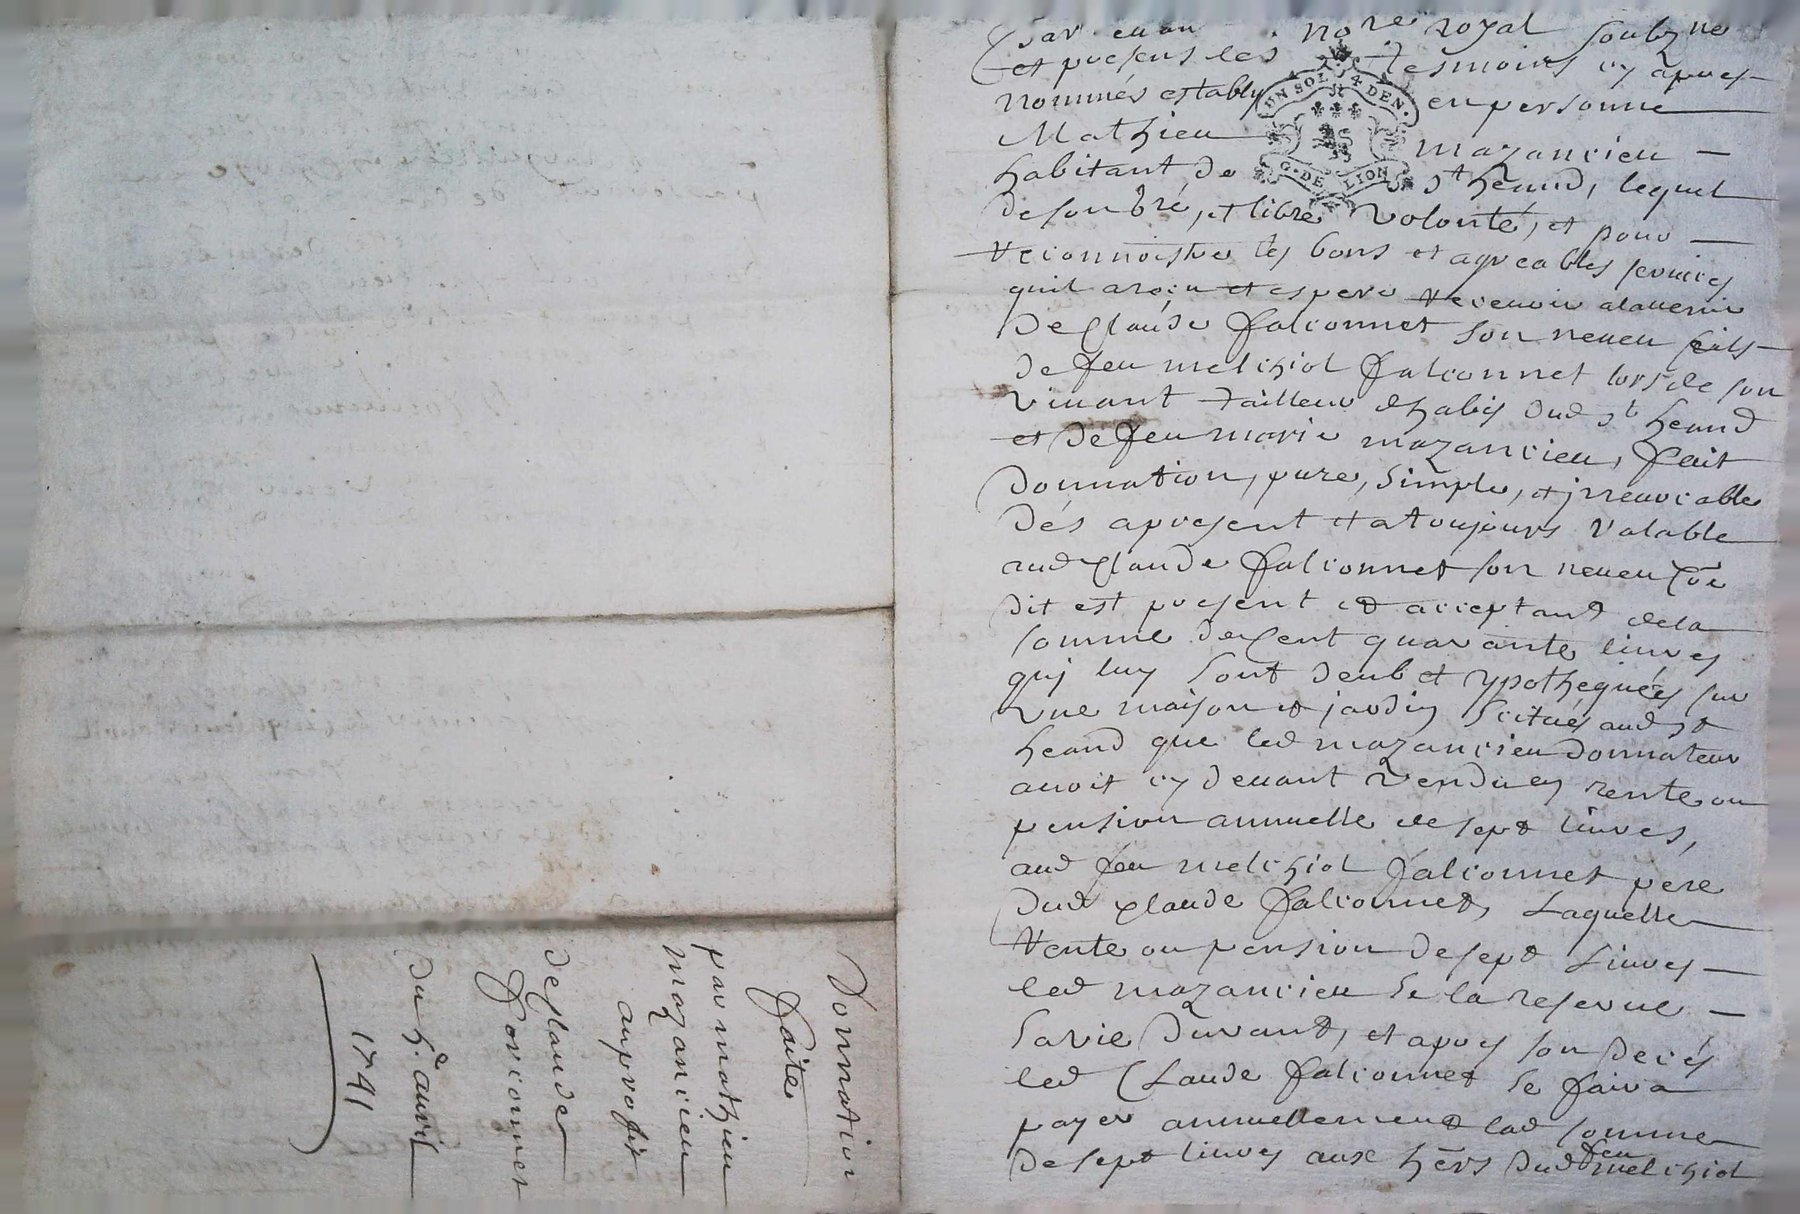 Par devan nore royal soubzne
et presens les tesmoins cy apres
nommés estably en personne
Mathieu mazancieu
habitant de st heand, lequel
de son gré, et libre volonté, et pour
reconnoistre les bons et agreables services
quil a reçu et espere recevoir alavenir
de Claude falconnet son neveu fils
de feu melchiol falconnet lors de son
vivant tailleur dhabis dud st heand
et de feu marie mazancieu, fait
donnation, pure, simple, et jrreuocable
dés apresent et atoujours valable
aud Claude falconnet son neveu
dit est present et acceptant dela
somme de Cent quarante livres
quj luy sont deub et ypothequées sur
une maison et jardin scitués aud st
heand que led mazancieu donnateur
auoit cy deuant vendu en rente ou
pension annuelle de sept liures,
aud feu melchiol falconnet pere
dud Claude falconnet, Laquelle
rente ou pension de sept Liures
led mazancieu se la reserue
sa vie durant, et apres son decés
led Claude falconnet se faira
payer annuellement lad somme
de sept liures aux hers dud feu melchiol
UN SOL 4 DEN.
G. DE LION
Donnation
faite
par mathieu
mazancieu
au profit
de Claude
forconnet
du 4e avril
1741